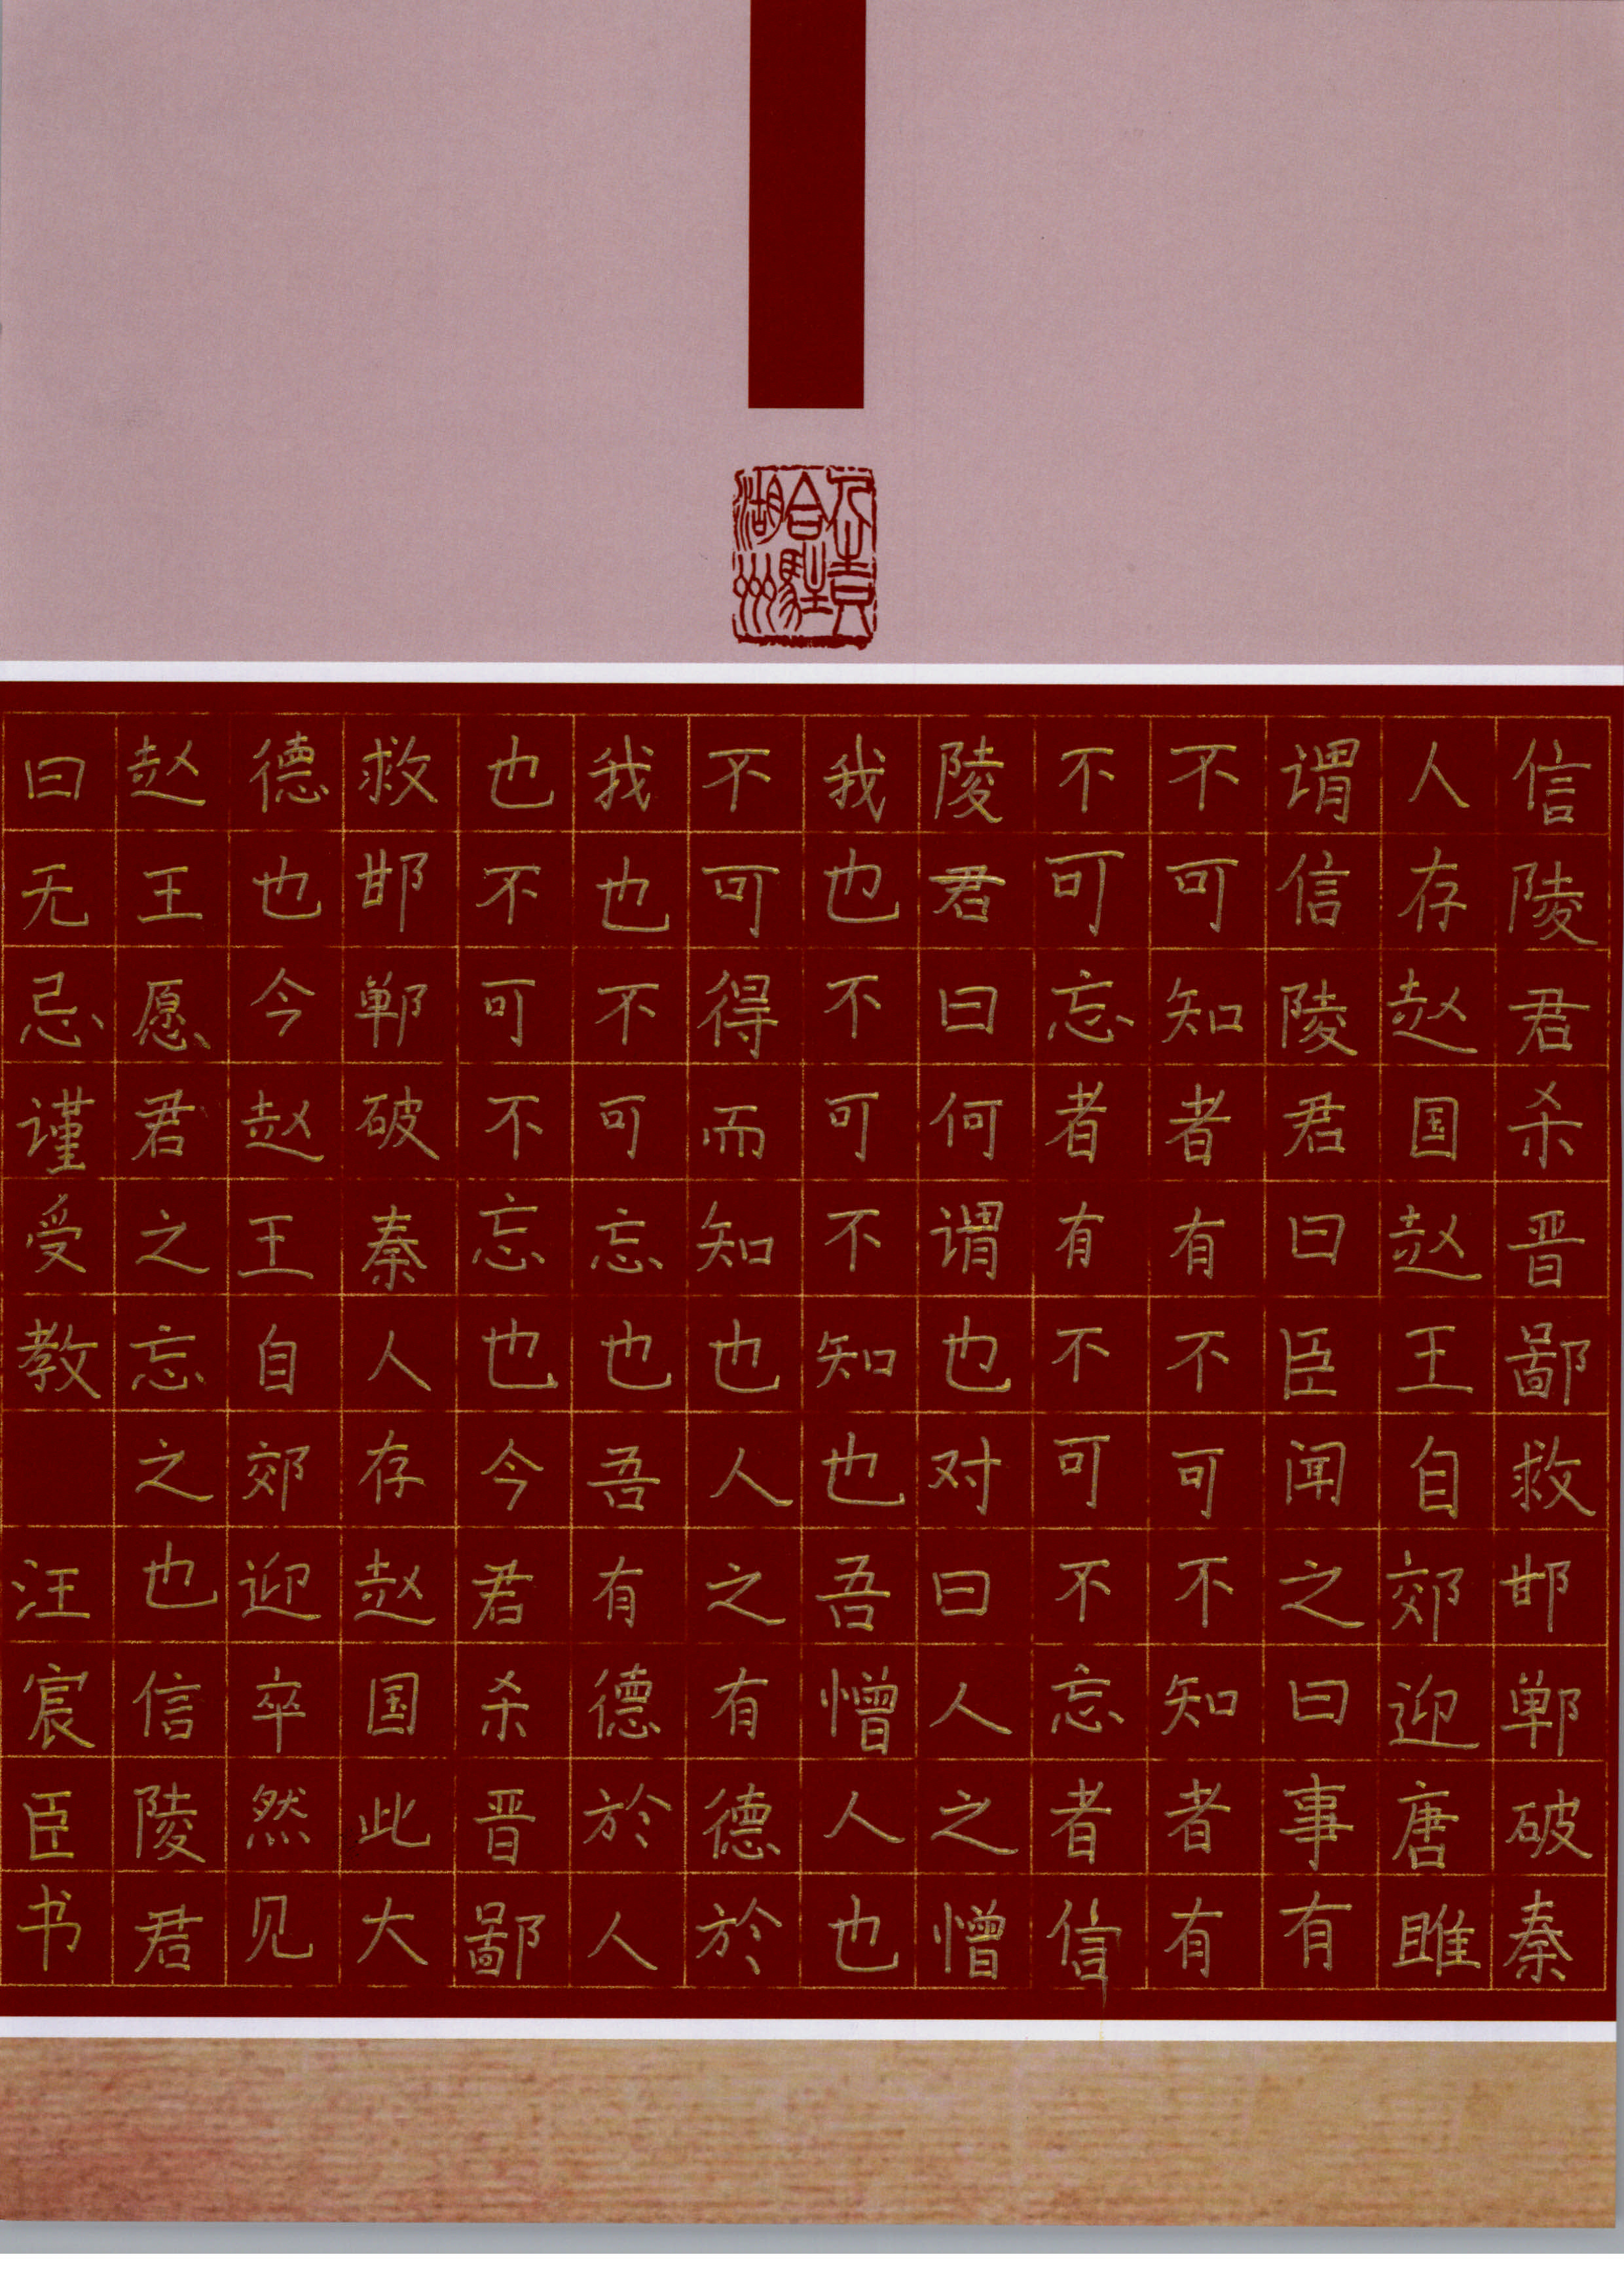 信陵君杀晋鄙救邯郸破秦
人存赵国赵王自郊迎唐雎
谓信陵君曰臣闻之曰事有
不可知者有不可不知者有
不可忘者有不可不忘者信
陵君曰何谓也对曰人之憎
我也不可不知也吾憎人也
不可得而知也人之有德於
我也不可忘也吾有德於人
也不可不忘也今君杀晋鄙
救邯郸破秦人存赵国此大
德也今赵王自郊迎卒然见
赵王愿君之忘之也信陵君
曰无忌谨受教 汪宸臣书